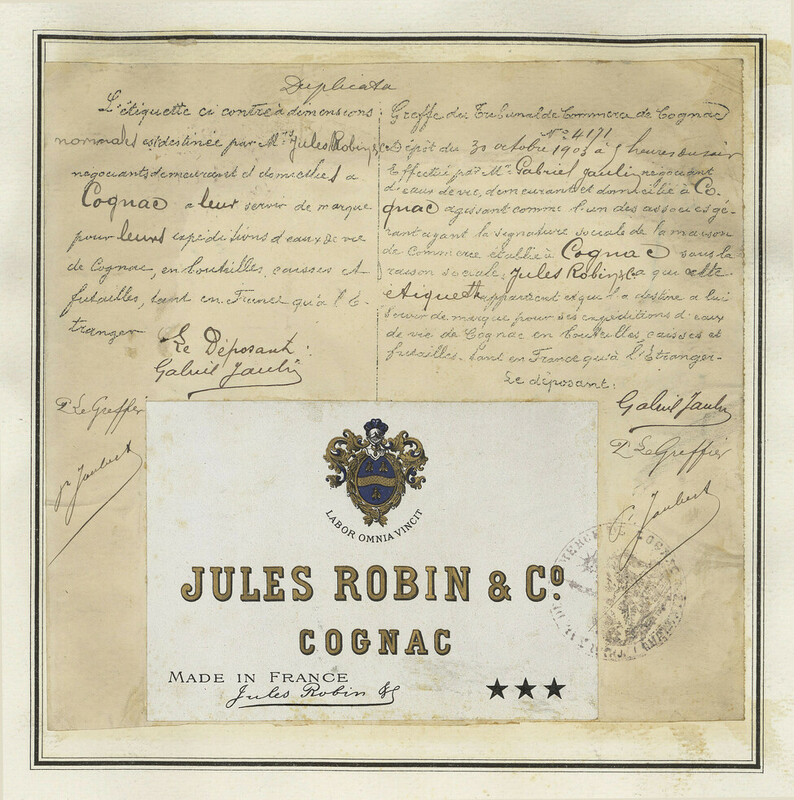 Duplicata
L'étiquette ci contre à dimensions
normales est destinée par Mrs Jules Robin & Co
négociants demeurant et domiciliés à
Cognac a leur servir de marque
pour leurs expéditions d'eaux de vie
de Cognac, en bouteilles, caisses et
futailles, tant en France qu'à l'E-
tranger
Le Déposant:
Gabriel Jaulin
P. Le Greffier
Joubert
Greffe du Tribunal de Commerce de Cognac
No 4171
Dépôt du 30 octobre 1903 à 5 heures du soir
Effectué par Mr Gabriel Jaulin, négociant
d'eaux de vie, demeurant et domicilié à Co-
gnac agissant comme l'un des associés gé-
rant ayant la signature sociale de la maison
de Commerce établie à Cognac sous la
raison sociale: Jules Robin & Co a qui cette
étiquette appartient et qui l'a destine a lui
servir de marque pour ses expéditions d'eaux
de vie de Cognac en bouteilles, caisses et
futailles. tant en France qu'à l'Etranger-
Le déposant:
Gabriel Jaulin
P. Le Greffier
Joubert
LABOR OMNIA VINCIT
JULES ROBIN & Co.
COGNAC
MADE IN FRANCE
Jules Robin & Co
★★★